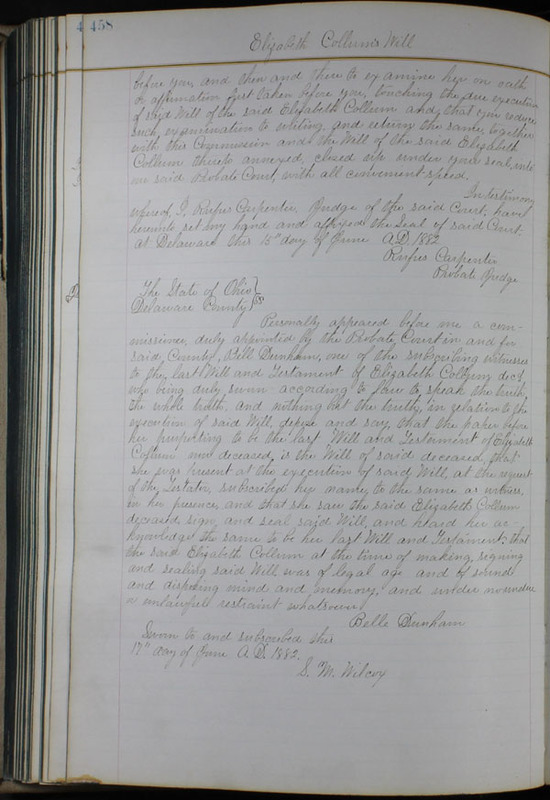 458
Elizabeth Collum's Will
before you, and then and there to examine her on oath
or affirmation first taken before you, touching the due execution
of said Will of the said Elizabeth Collum and that you reduce
such examination to writing, and return the same, together
with this Commission and the Will of the said Elizabeth
Collum thereto annexed, closed up under your seal, into
our said Probate Court, with all convenient speed.
In testimony
whereof I, Rufus Carpenter, Judge of the said Court, have
hereunto set my hand and affixed the Seal of said Court
at Delaware this 15" day of June A.D. 1882
Rufus Carpenter
Probate Judge
The State of Ohio }
Delaware County } SS
Personally appeared before me a com-
missioner, duly appointed by the Probate Court in and for
said County, Bell Dunham, one of the subscribing witnesses
to the last Will and Testament of Elizabeth Collum decd,
who being duly sworn according to law to speak the truth,
the whole truth, and nothing but the truth, in relation to the
execution of said Will, depose and say, that the paper before
her purporting to be the last Will and Testament of Elizabeth
Collum now deceased, is the Will of said deceased, that
she was present at the execution of said Will, at the request
of the Testator, subscribed her name to the same as witness,
in her presence, and that she saw the said Elizabeth Collum
deceased sign, and seal said Will, and heard her ac-
knowledge the same to be her last Will and Testament, that
the said Elizabeth Collum at the time of making, signing
and sealing said Will, was of legal age and of sound
and disposing mind and memory, and under no undue
or unlawfull restraint whatsoever
Belle Dunham
Sworn to and subscribed this
17" day of June A.D. 1882.
S. M. Wilcox